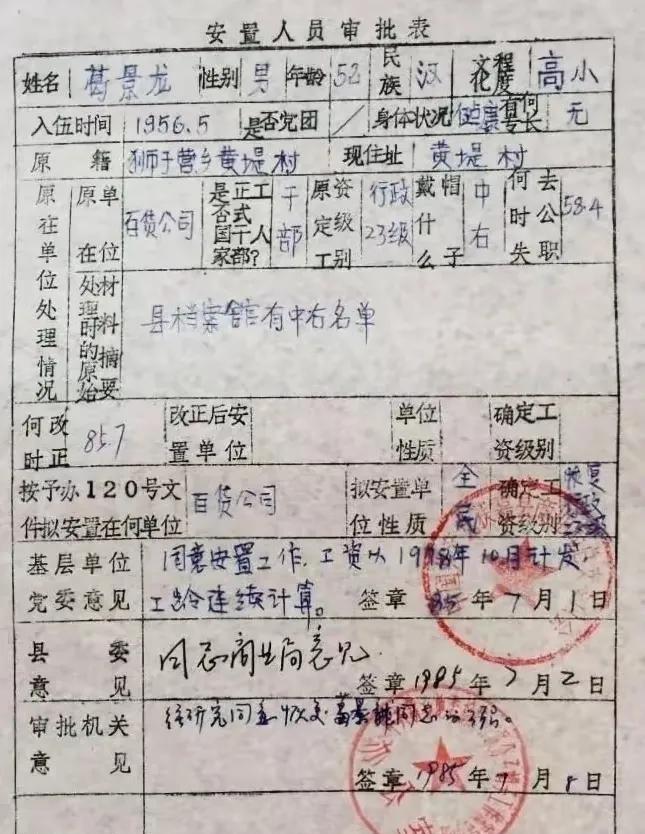 安置人员审批表
姓名 葛景龙 性别 男 年龄 52 民族 汉 文化程度 高小
入伍时间 1956.5 是否党团 / 身体状况 健康 有何专长 无
原籍 狮子营乡黄堤村 现住址 黄堤村
原在单位处理情况 原单位 在位 百货公司 是否正式国家干部?工人 干部 原资定级工别 行政23级 戴什么帽子 中右 何时失去公职 58.4
处理时的原始材料摘要 县档案馆有中右名单
何时改正 85.7 改正后安置单位 单位性质 确定工资级别
按予办120号文件拟安置在何单位 百货公司 拟安置单位性质 全民 确定工资级别 恢复行政
基层单位党委意见 同意安置工作,工资从1978年10月计发,
工龄连续计算。 签章 85年7月1日
县委意见 同意商业局意见.
签章 1985年7月2日
审批机关意见 经研究同意恢复葛景龙同志
签章 1985年7月8日